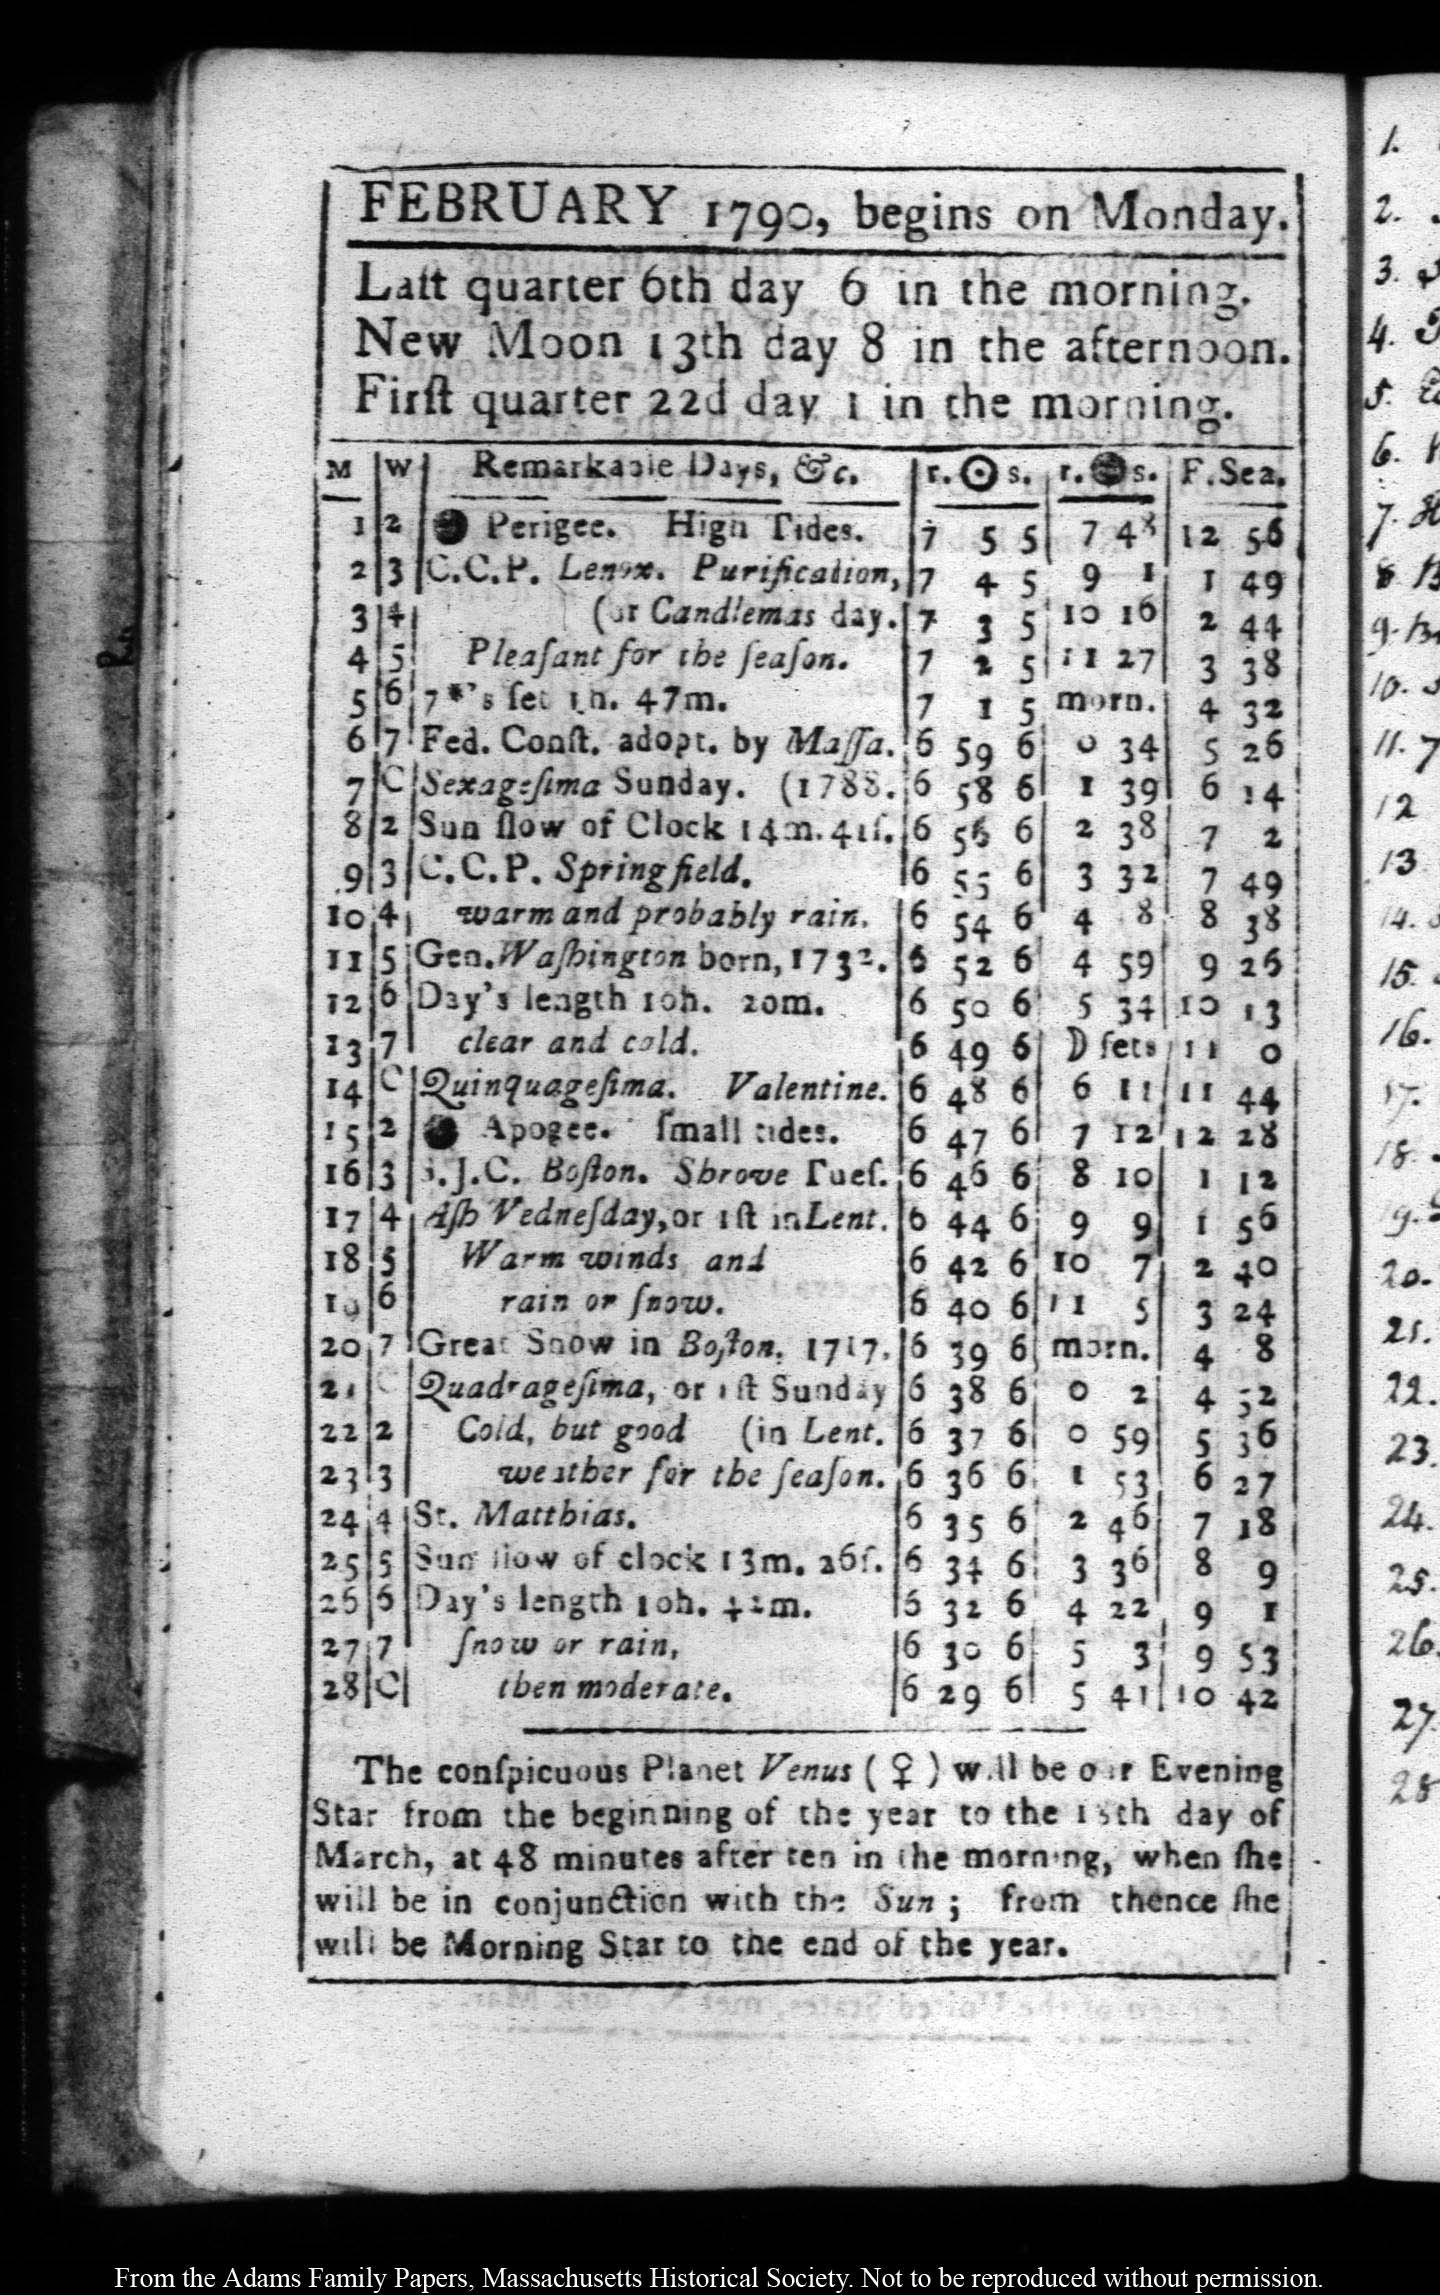 FEBRUARY 1790, begins on Monday.
Laſt quarter 6th day 6 in the morning.
New Moon 13th day 8 in the afternoon.
Firſt quarter 22d day 1 in the morning.
M W Remarkable Days, &c. r. ☉ s. r. ● s. F. Sea.
1 2 ● Perigee. High Tides. 7 5 5 7 48 12 56
2 3 C.C.P. Lenox. Purification, 7 4 5 9 1 1 49
3 4 (or Candlemas day. 7 3 5 10 16 2 44
4 5 Pleaſant for the ſeaſon. 7 2 5 11 27 3 38
5 6 7*'s ſet 1h. 47m. 7 1 5 morn. 4 32
6 7 Fed. Conſt. adopt. by Maſſa. 6 59 6 0 34 5 26
7 C Sexageſima Sunday. (1788. 6 58 6 1 39 6 14
8 2 Sun ſlow of Clock 14m. 41ſ. 6 56 6 2 38 7 2
9 3 C.C.P. Springfield. 6 55 6 3 32 7 49
10 4 warm and probably rain. 6 54 6 4 8 8 38
11 5 Gen. Waſhington born, 1732. 6 52 6 4 59 9 26
12 6 Day's length 10h. 20m. 6 50 6 5 34 10 13
13 7 clear and cold. 6 49 6 ☽ ſets 11 0
14 C Quinquageſima. Valentine. 6 48 6 6 11 11 44
15 2 ● Apogee. ſmall tides. 6 47 6 7 12 12 28
16 3 S.J.C. Boſton. Shrove Tueſ. 6 46 6 8 10 1 12
17 4 Aſh Wedneſday, or 1ſt in Lent. 6 44 6 9 9 1 56
18 5 Warm winds and 6 42 6 10 7 2 40
19 6 rain or ſnow. 6 40 6 11 5 3 24
20 7 Great Snow in Boſton. 1717. 6 39 6 morn. 4 8
21 C Quadrageſima, or 1ſt Sunday 6 38 6 0 2 4 52
22 2 Cold, but good (in Lent. 6 37 6 0 59 5 36
23 3 weather for the ſeaſon. 6 36 6 1 53 6 27
24 4 St. Matthias. 6 35 6 2 46 7 18
25 5 Sun ſlow of clock 13m. 26ſ. 6 34 6 3 36 8 9
26 6 Day's length 10h. 42m. 6 32 6 4 22 9 1
27 7 ſnow or rain, 6 30 6 5 3 9 53
28 C then moderate. 6 29 6 5 41 10 42
The conſpicuous Planet Venus (♀) will be our Evening
Star from the beginning of the year to the 18th day of
March, at 48 minutes after ten in the morning, when ſhe
will be in conjunction with the Sun; from thence ſhe
will be Morning Star to the end of the year.
1.
2.
3.
4.
5.
6.
7.
8
9.
10.
11.
12
13
14.
15.
16.
17.
18.
19.
20.
21.
22.
23.
24.
25.
26.
27.
28
From the Adams Family Papers, Massachusetts Historical Society. Not to be reproduced without permission.